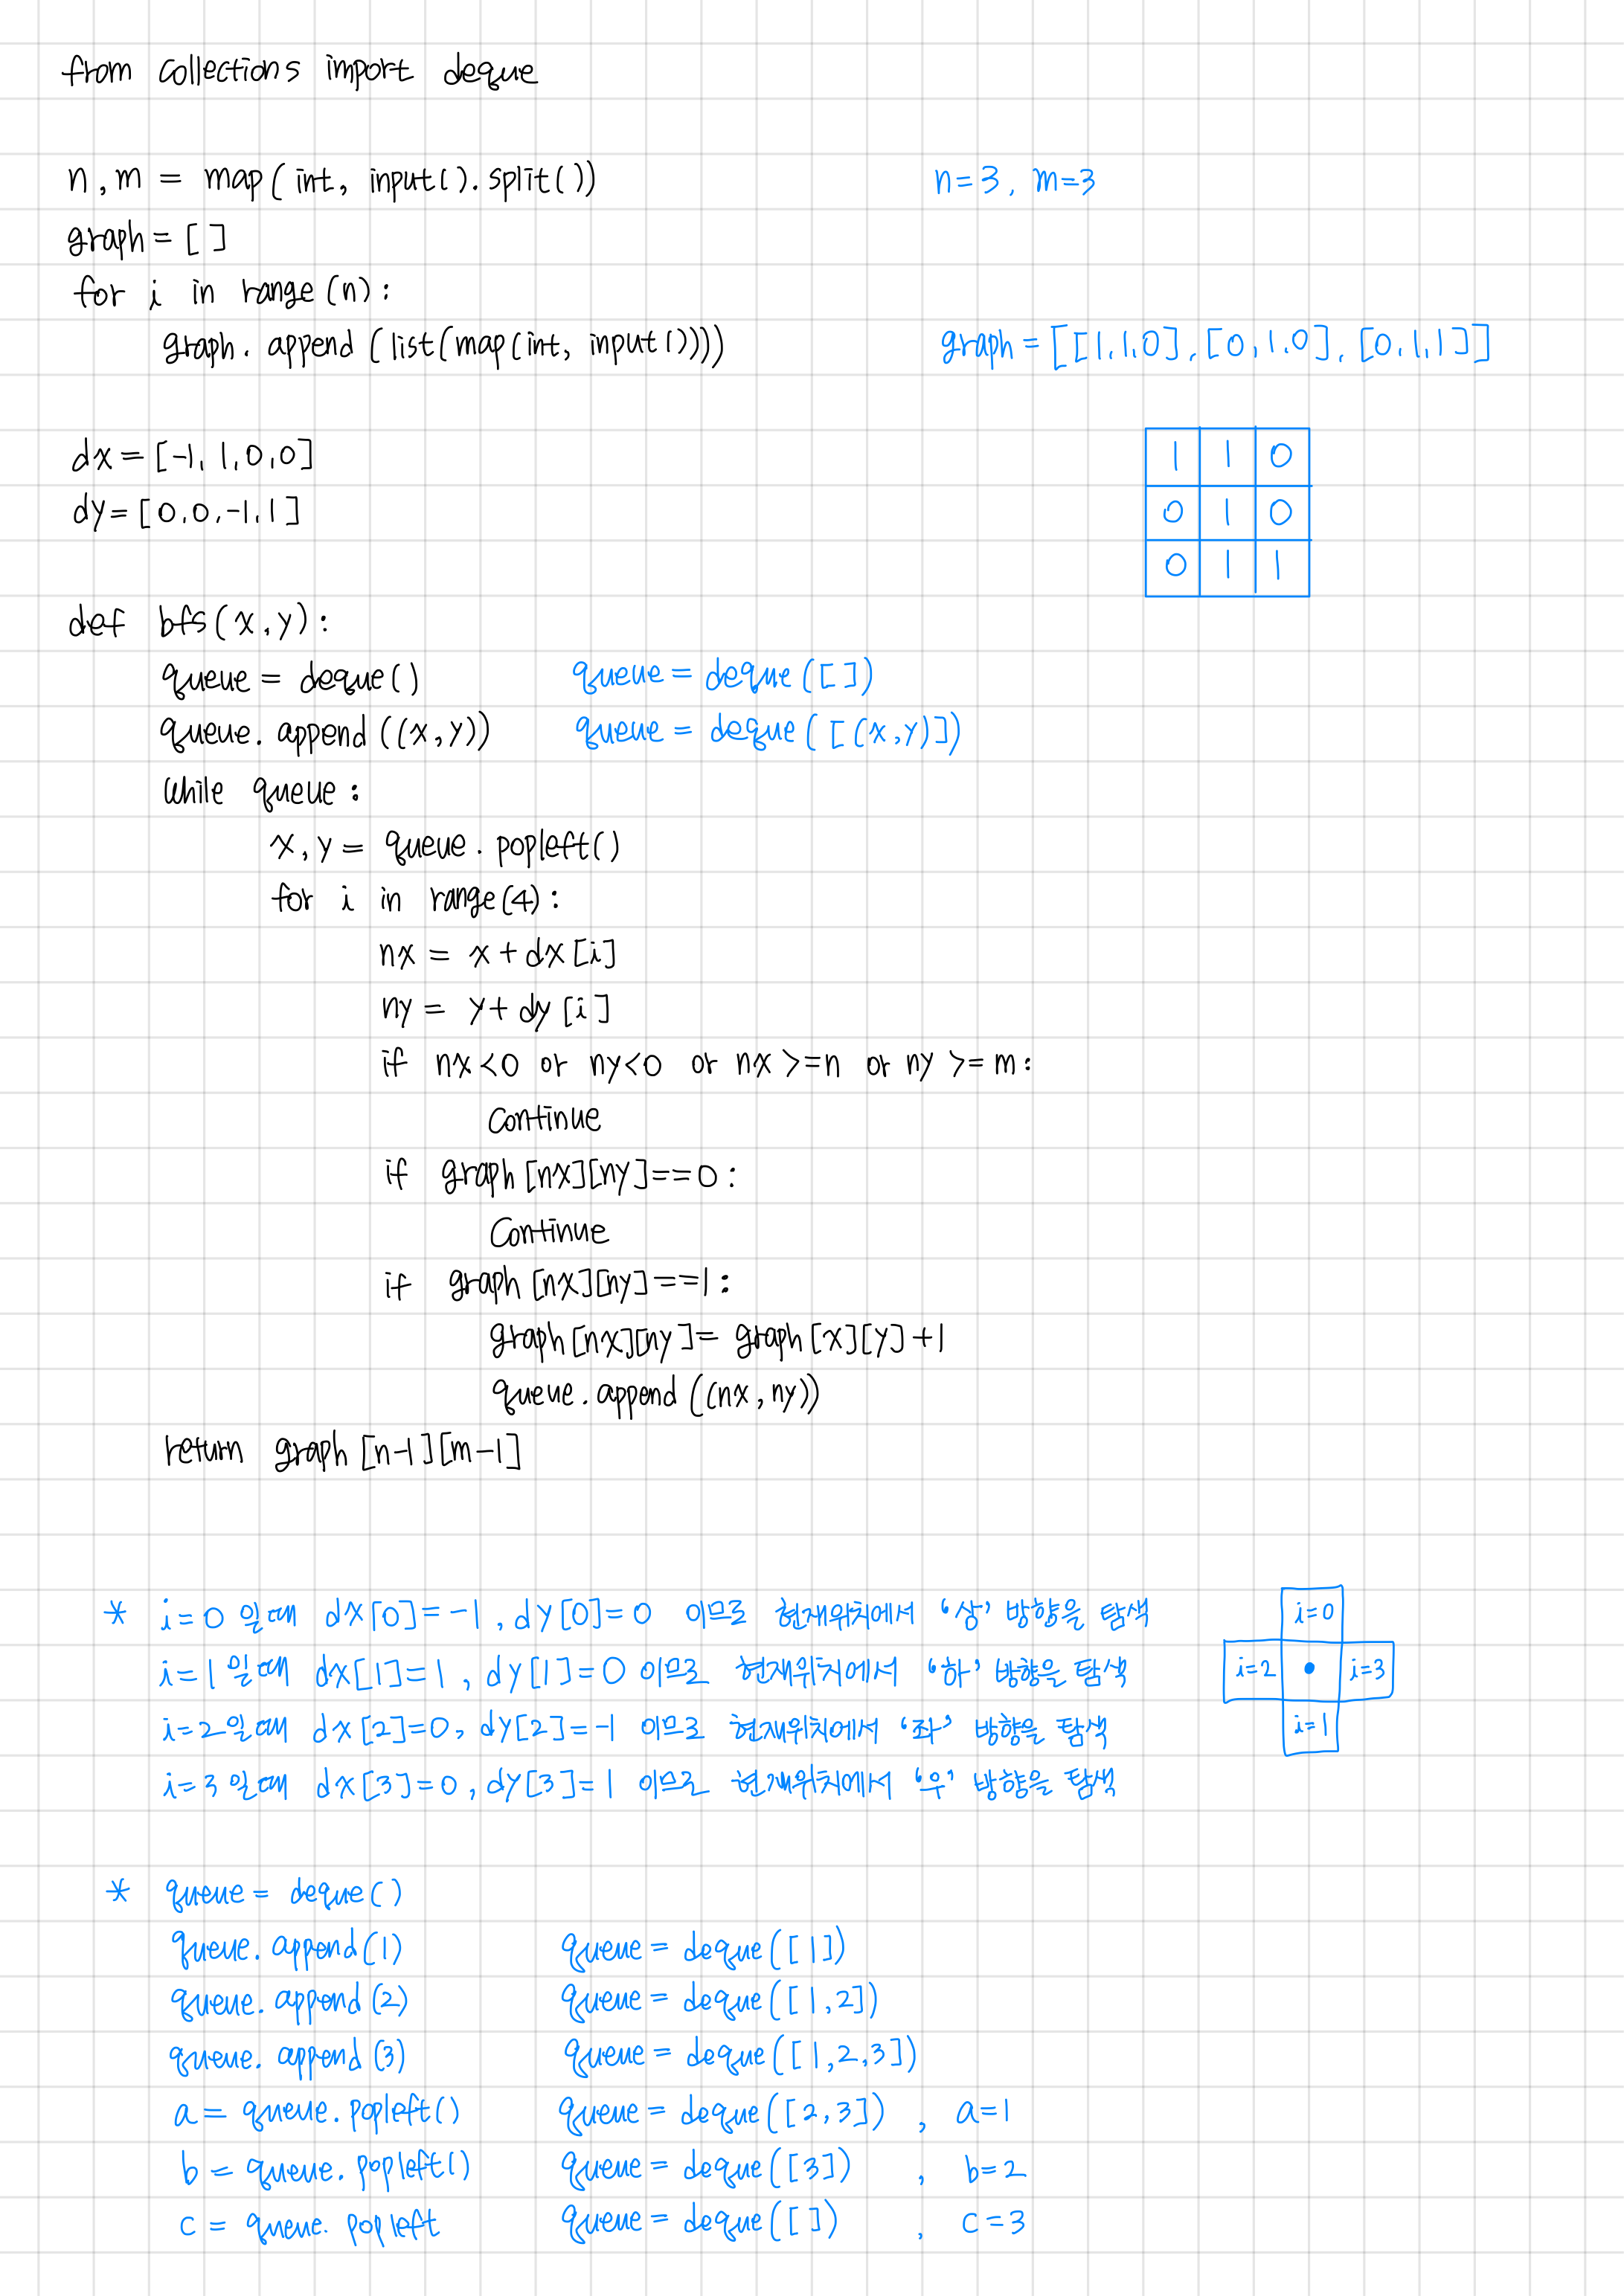 from collections import deque
n, m = map(int, input().split()) n=3, m=3
graph = []
for i in range(n):
graph.append(list(map(int, input()))) graph = [[1,1,0], [0,1,0], [0,1,1]]
dx = [-1, 1, 0, 0]
dy = [0, 0, -1, 1]
1 1 0
0 1 0
0 1 1
def bfs(x,y):
queue = deque() queue = deque([])
queue.append((x,y)) queue = deque([(x,y)])
while queue:
x, y = queue.popleft()
for i in range(4):
nx = x + dx[i]
ny = y + dy[i]
if nx<0 or ny<0 or nx >=n or ny >= m:
continue
if graph[nx][ny]==0:
continue
if graph[nx][ny]==1:
graph[nx][ny] = graph[x][y] +1
queue.append((nx, ny))
return graph[n-1][m-1]
* i=0 일때 dx[0]=-1, dy[0]=0 이므로 현재위치에서 '상' 방향을 탐색
i=1 일때 dx[1]=1, dy[1]=0 이므로 현재위치에서 '하' 방향을 탐색
i=2 일때 dx[2]=0, dy[2]=-1 이므로 현재위치에서 '좌' 방향을 탐색
i=3 일때 dx[3]=0, dy[3]=1 이므로 현재위치에서 '우' 방향을 탐색
i=0
i=2 i=3
i=1
* queue = deque()
queue.append(1) queue = deque([1])
queue.append(2) queue = deque([1,2])
queue.append(3) queue = deque([1,2,3])
a = queue.popleft() queue = deque([2,3]) , a=1
b = queue.popleft() queue = deque([3]) , b=2
c = queue.popleft queue = deque([]) , c=3